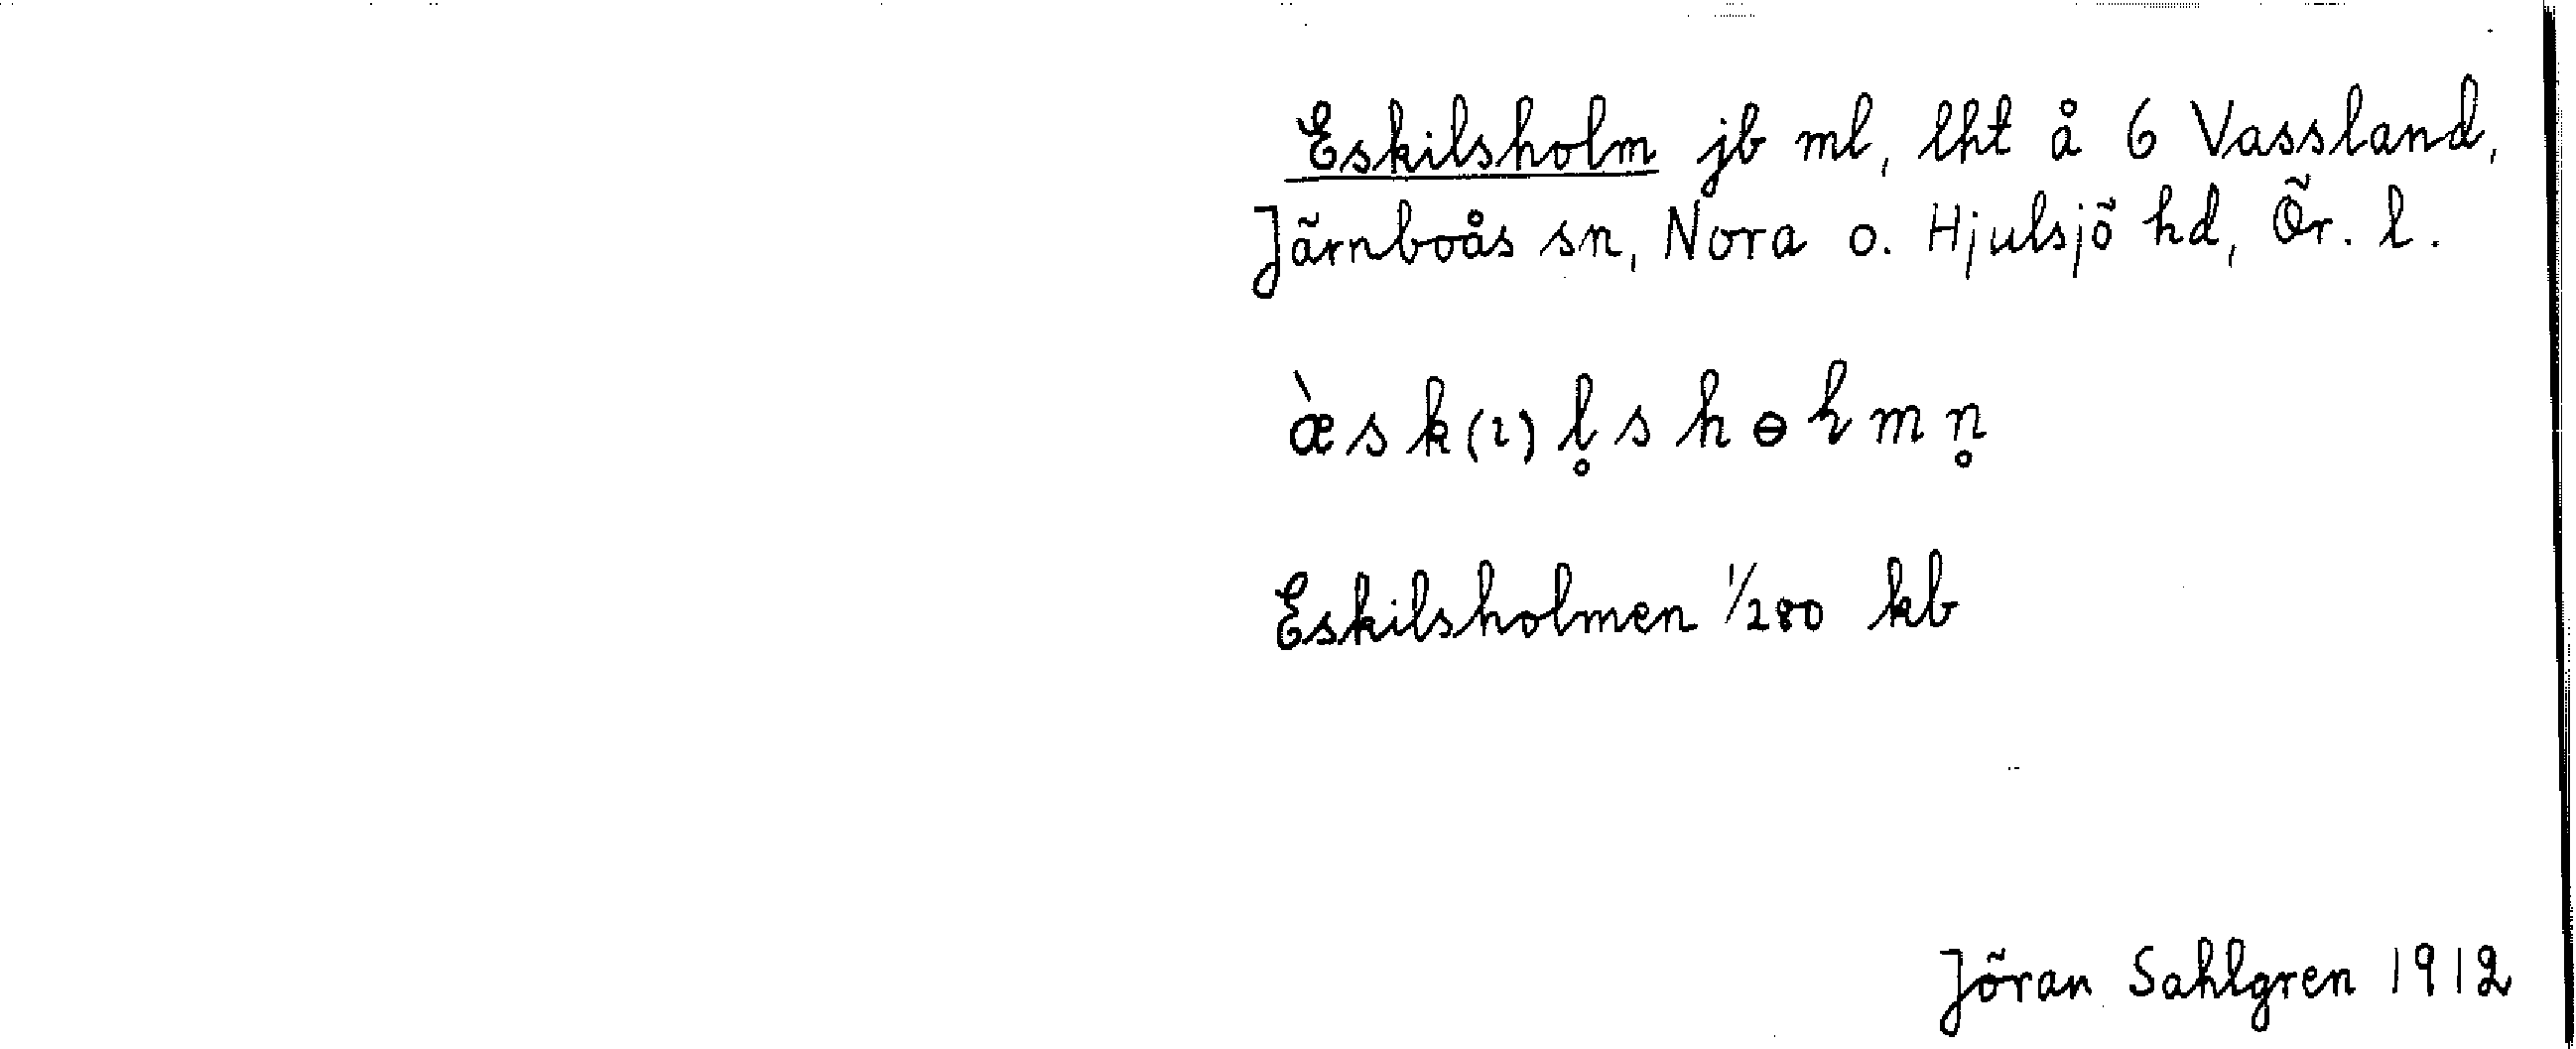 Eskilsholm jb ml, lht å 6 Vassland,
Järnboås sn, Nora o. Hjulsjö hd, Ör. l.
æ̀sk(ɩ)l̥shɵlmn̥
Eskilsholmen 1/280 kb
Jöran Sahlgren 1912